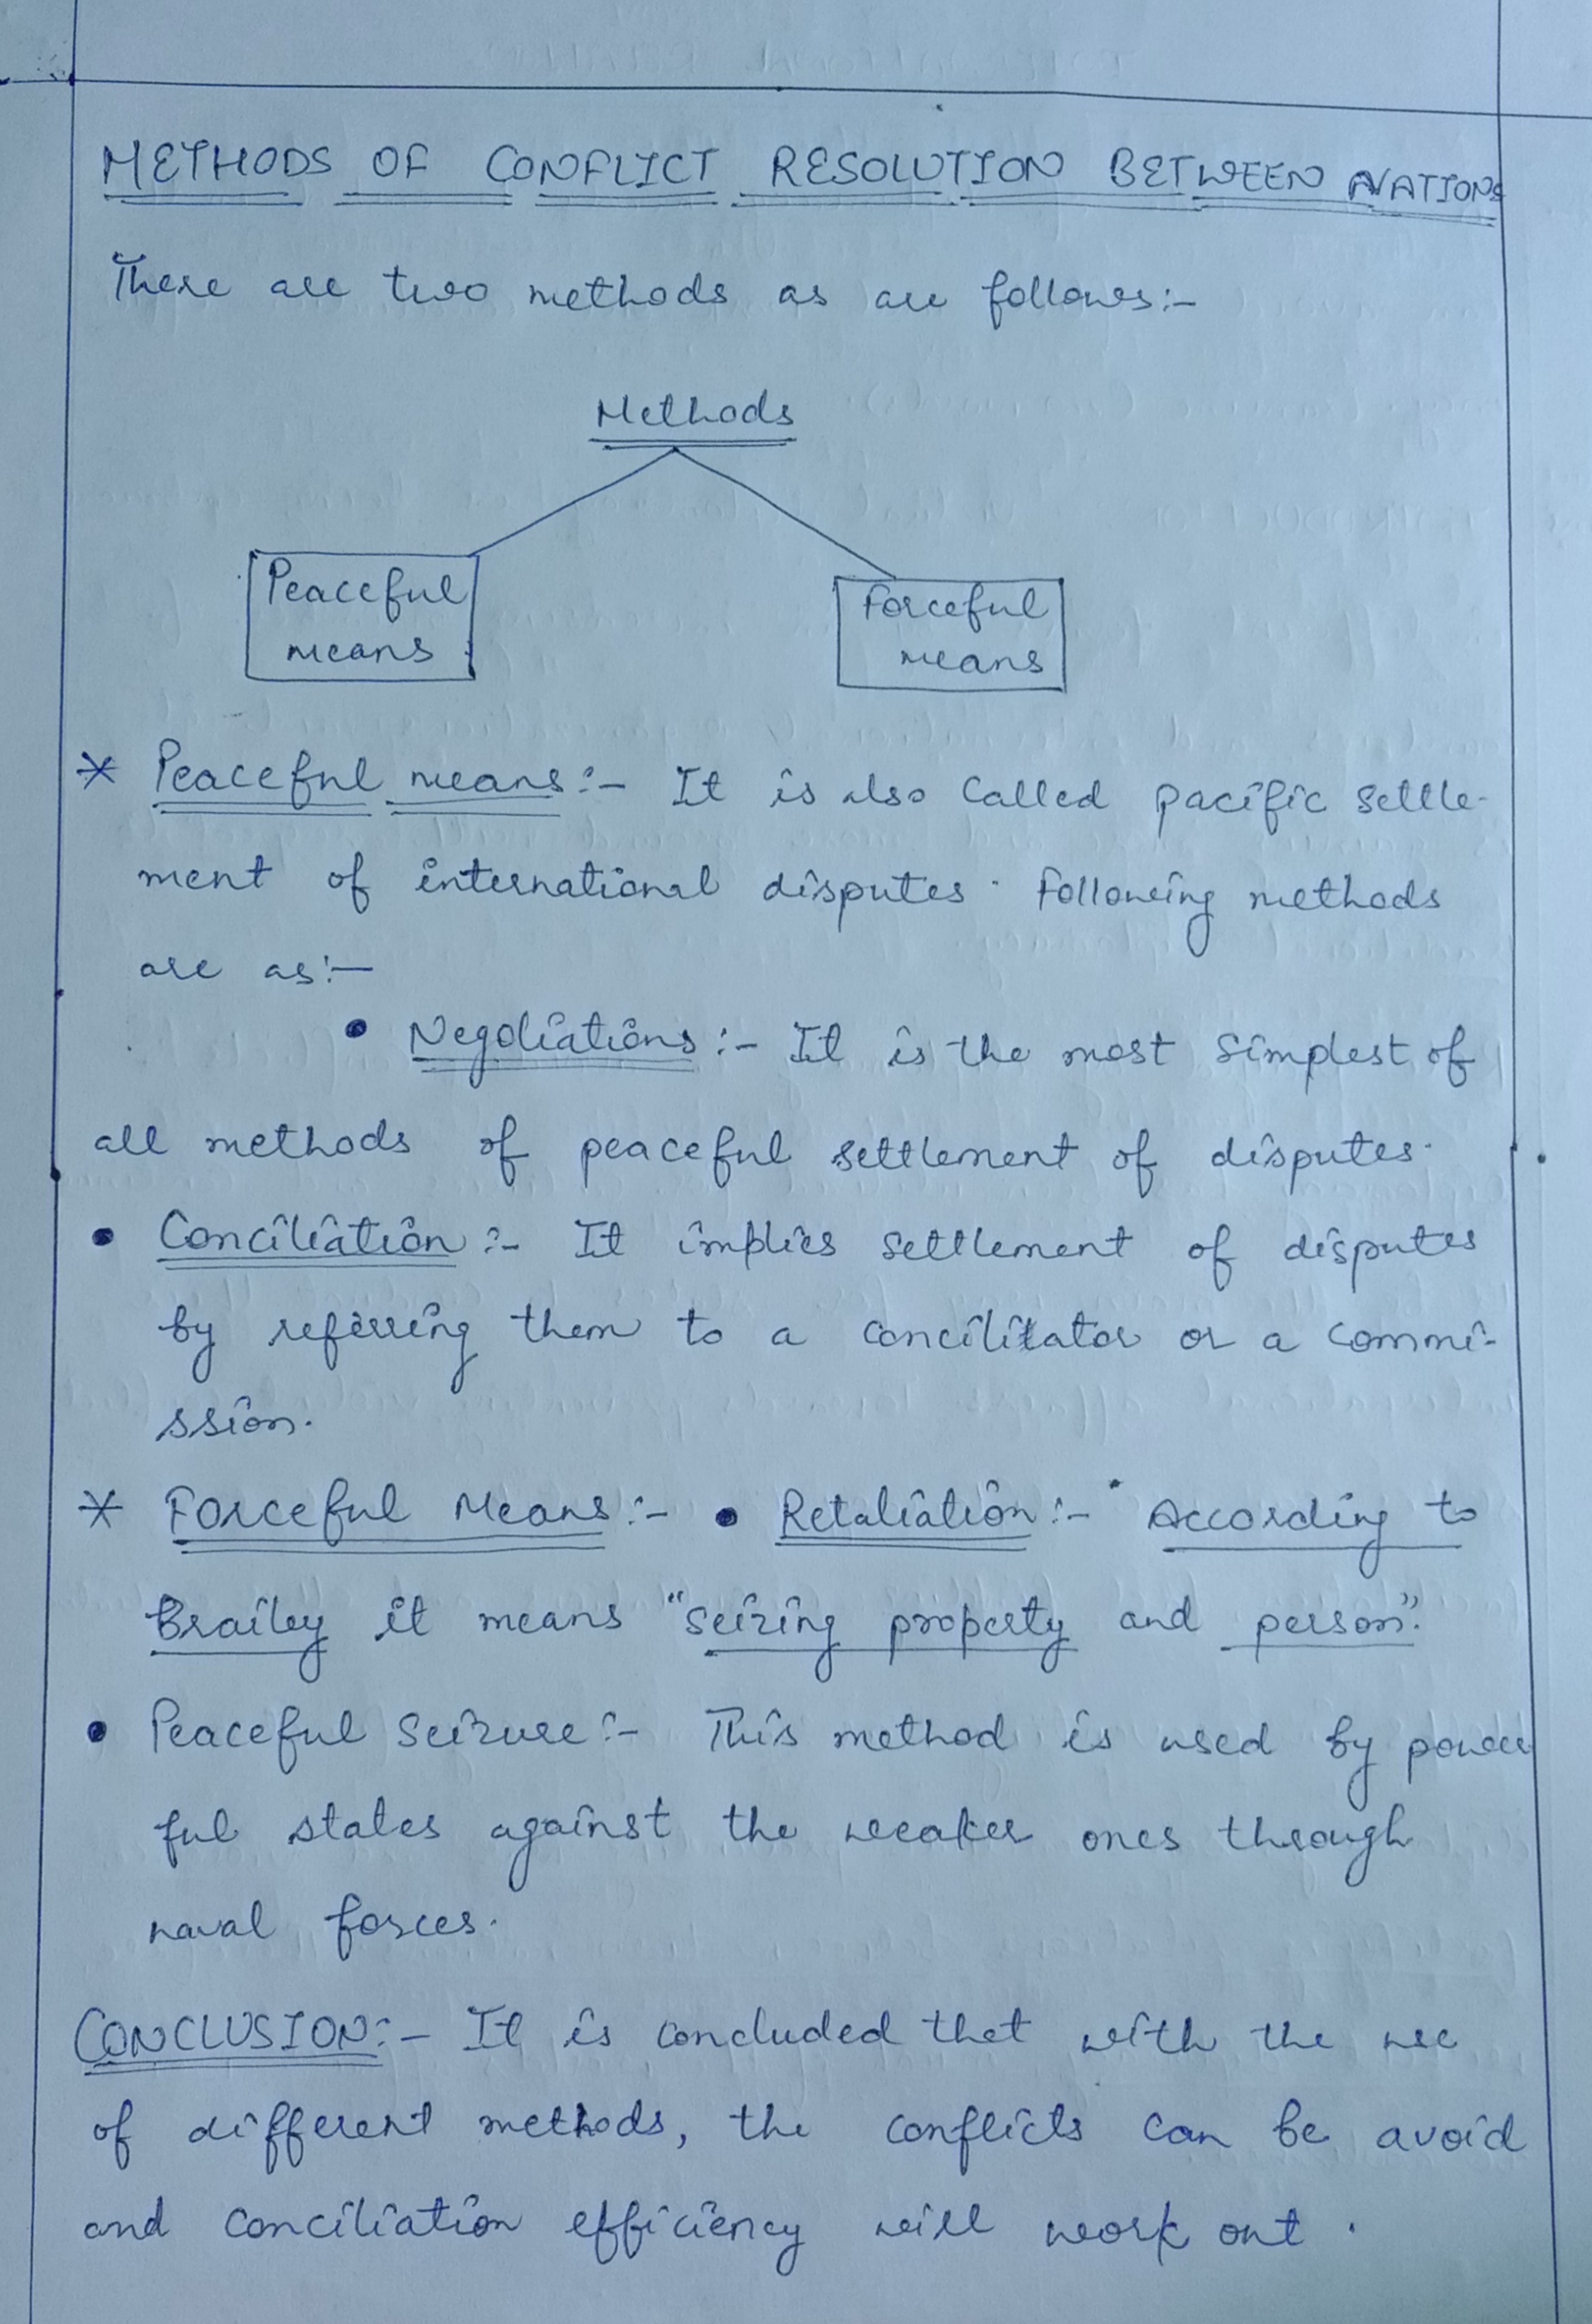 METHODS OF CONFLICT RESOLUTION BETWEEN NATIONS
There are two methods as are follows:-
Methods
Peaceful means
Forceful means
* Peaceful means:- It is also called pacific settle-
ment of international disputes. Following methods
are as:-
• Negotiations:- It is the most simplest of
all methods of peaceful settlement of disputes.
• Conciliation:- It implies settlement of disputes
by referring them to a concilitator or a commi-
ssion.
* Forceful Means:- • Retaliation:- According to
Brailey it means "seizing property and person".
• Peaceful Seizure:- This method is used by power
ful states against the weaker ones through
naval forces.
CONCLUSION:- It is concluded that with the use
of different methods, the conflicts can be avoid
and conciliation efficiency will work out.